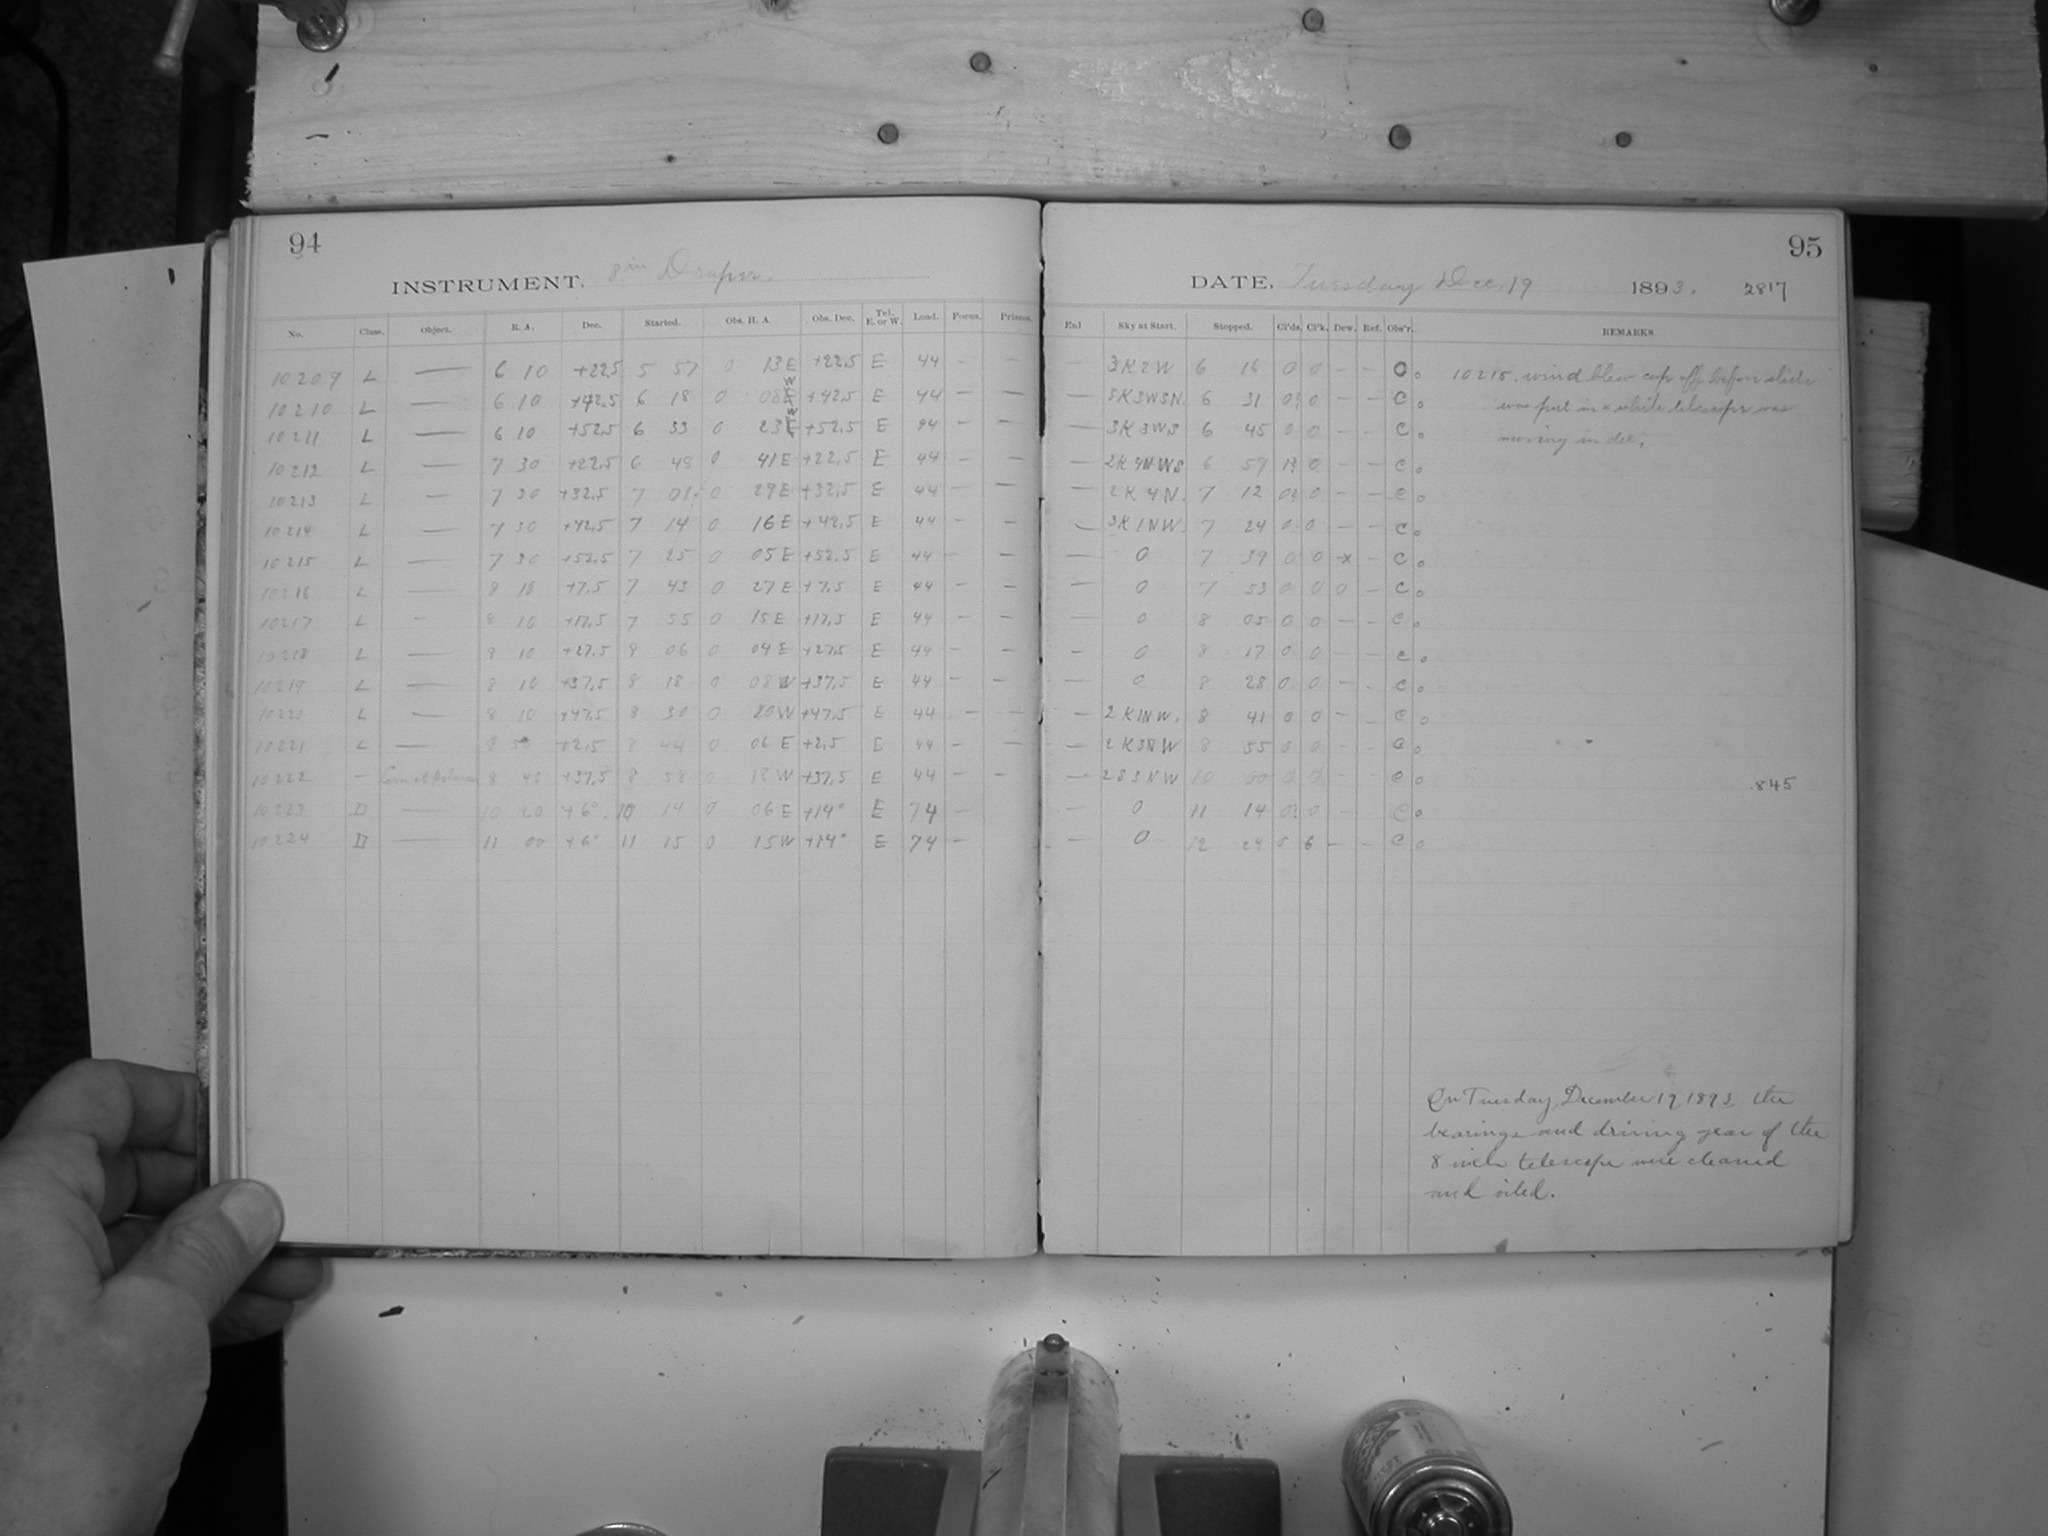 94
INSTRUMENT, 8 in Draper.
No. Class. Object. R. A. Dec. Started. Obs. H. A. Obs. Dec. Tel. E. or W. Load. Focus. Prisms.
10209 L — 6 10 +22.5 5 57 0 13 E +22.5 E 44 — —
10210 L — 6 10 +42.5 6 18 0 08 W +42.5 E 44 — —
10211 L — 6 10 +52.5 6 33 0 23 W +52.5 E 44 — —
10212 L — 7 30 +22.5 6 48 0 41 E +22.5 E 44 — —
10213 L — 7 30 +32.5 7 01 0 29 E +32.5 E 44 — —
10214 L — 7 30 +42.5 7 14 0 16 E +42.5 E 44 — —
10215 L — 7 30 +52.5 7 25 0 05 E +52.5 E 44 — —
10216 L — 8 10 +7.5 7 43 0 27 E +7.5 E 44 — —
10217 L — 8 10 +17.5 7 55 0 15 E +17.5 E 44 — —
10218 L — 8 10 +27.5 8 06 0 04 E +27.5 E 44 — —
10219 L — 8 10 +37.5 8 18 0 08 W +37.5 E 44 — —
10220 L — 8 10 +47.5 8 30 0 20 W +47.5 E 44 — —
10221 L — 8 50 +2.5 8 44 0 06 E +2.5 E 44 — —
10222 — 8 40 +37.5 8 58 0 18 W +37.5 E 44 — —
10223 D — 10 20 +6° 10 14 0 06 E +14° E 74 —
10224 D — 11 00 +6° 11 15 0 15 W +14° E 74 —
95
DATE, Tuesday Dec. 19 1893. 2817
Enl Sky at Start. Stopped. Cl'ds. Cl'k. Dew. Ref. Obs'r. REMARKS.
— 3K2W 6 16 0 0 — — C.
— 5K3WSN. 6 31 0? 0 — — C.
— 3K3WS 6 45 0 0 — — C.
— 2K4NWS 6 59 1? 0 — — C.
— 2K4N. 7 12 0? 0 — — C.
— 3K1NW. 7 24 0 0 — — C.
— 0 7 39 0 0 x — C.
— 0 7 53 0 0 0 — C.
— 0 8 05 0 0 — — C.
— 0 8 17 0 0 — — C.
— 0 8 28 0 0 — — C.
— 2K1NW. 8 41 0 0 — — C.
— 2K3NW 8 55 0 0 — — C.
— 2S3NW 10 00 0 0 — — C. .845
— 0 11 14 0? 0 C.
— 0 12 5 6 — — C.
10215. wind blew cap off before slide
was put in & while telescope was
moving in dec.
On Tuesday, December 19 1893, the
bearings and driving gear of the
8 inch telescope were cleaned
and oiled.